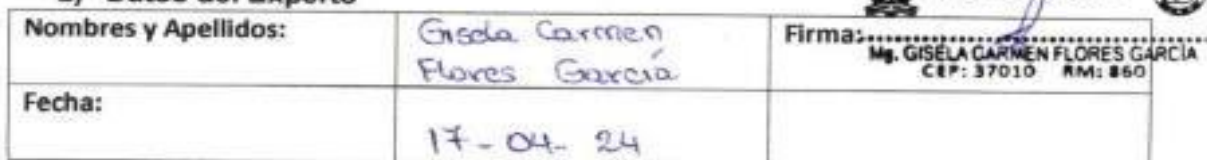 Datos del Experto
Nombres y Apellidos: Gisela Carmen Flores García
Firma:
Mg. GISELA CARMEN FLORES GARCÍA
CEP: 37010 RM: 860
Fecha: 17-04-24